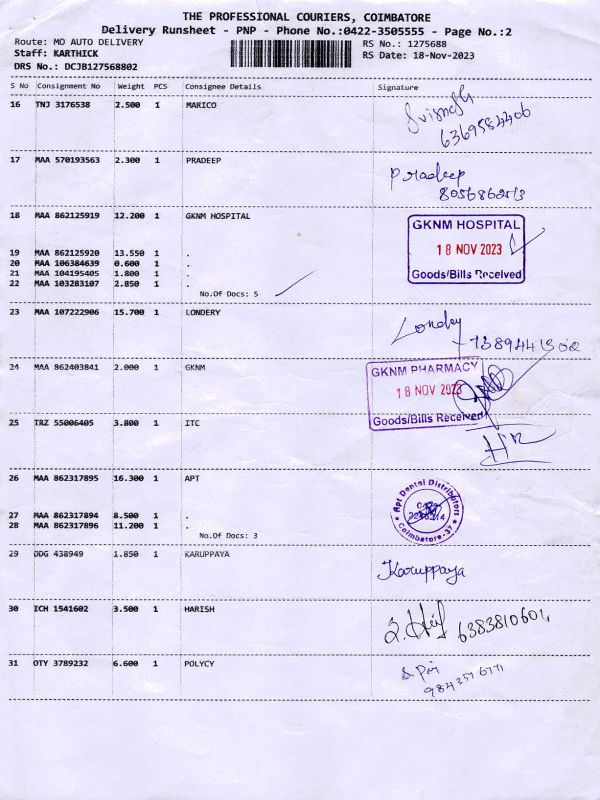 THE PROFESSIONAL COURIERS, COIMBATORE
Delivery Runsheet - PNP - Phone No.:0422-3505555 - Page No.:2
Route: MO AUTO DELIVERY RS No.: 1275688
Staff: KARTHICK RS Date: 18-Nov-2023
DRS No.: DCJB127568802
S No Consignment No Weight PCS Consignee Details Signature
16 TNJ 3176538 2.500 1 MARICO
6369584406
17 MAA 570193563 2.300 1 PRADEEP
Pradeep
18 MAA 862125919 12.200 1 GKNM HOSPITAL
GKNM HOSPITAL
18 NOV 2023
Goods/Bills Received
19 MAA 862125920 13.550 1 .
20 MAA 106384639 0.600 1 .
21 MAA 104195405 1.800 1 .
22 MAA 103283107 2.850 1 .
No.Of Docs: 5
23 MAA 107222906 15.700 1 LONDERY
24 MAA 862403841 2.000 1 GKNM
GKNM PHARMACY
18 NOV 2023
Goods/Bills Received
25 TRZ 55006405 3.800 1 ITC
26 MAA 862317895 16.300 1 APT
Apt Dental Distributors
Coimbatore-37
27 MAA 862317894 8.500 1 .
28 MAA 862317896 11.200 1 .
No.Of Docs: 3
29 DDG 438949 1.850 1 KARUPPAYA
Karuppaya
30 ICH 1541602 3.500 1 HARISH
6383810601
31 OTY 3789232 6.600 1 POLYCY